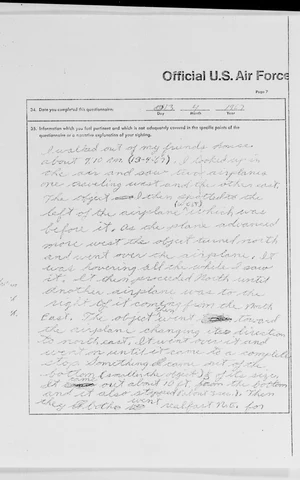 Official U.S. Air Force
Page 7
34. Date you completed this questionnaire:
13 4 1967
Day Month Year
35. Information which you feel pertinent and which is not adequately covered in the specific points of the questionnaire or a narrative explanation of your sighting.
I walked out of my friends house
about 9:10 (13-4-67). I looked up in
the air and saw two airplanes
one traveling west and the other east.
The object I then spotted to the
left of the airplane (west) which was
before it. As the plane advanced
more west the object turned north
and went over the airplane. It
was hovering all the while I saw
it. It then proceeded North until
another airplane was to the
right of it coming from the North
East. The object went toward
the airplane changing its direction
to northeast. It went over it and
went on until it came to a complete
stop. Something came out of the
bottom (smaller than the object) 1/5 of its size.
It came out about 10 ft. from the bottom
and it also stopped (about 5 sec.). Then
they both went real fast N.E. for